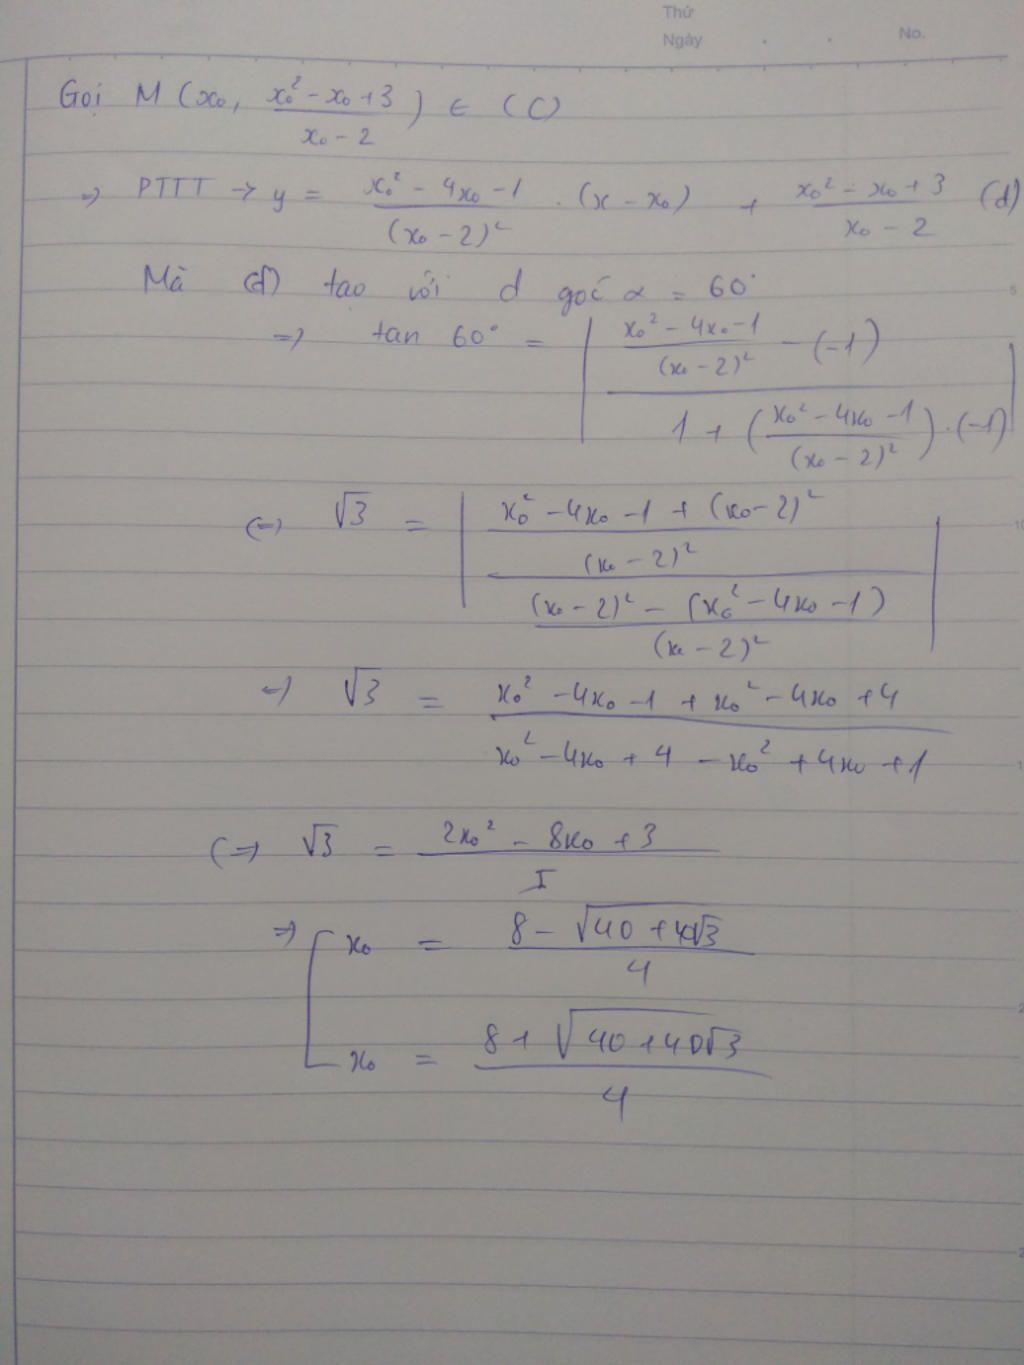 Thứ
Ngày . . No.
Gọi M (x₀, (x₀² - x₀ + 3)/(x₀ - 2)) ∈ (C)
=> PTTT -> y = (x₀² - 4x₀ - 1)/(x₀ - 2)² . (x - x₀) + (x₀² - x₀ + 3)/(x₀ - 2) (d)
Mà (d) tao với d góc α = 60°
=> tan 60° = | ((x₀² - 4x₀ - 1)/(x₀ - 2)² - (-1)) / (1 + ((x₀² - 4x₀ - 1)/(x₀ - 2)²) . (-1)) |
(=) √3 = | ((x₀² - 4x₀ - 1 + (x₀ - 2)²)/(x₀ - 2)²) / (((x₀ - 2)² - (x₀² - 4x₀ - 1))/(x₀ - 2)²) |
=) √3 = (x₀² - 4x₀ - 1 + x₀² - 4x₀ + 4)/(x₀² - 4x₀ + 4 - x₀² + 4x₀ + 1)
(=) √3 = (2x₀² - 8x₀ + 3)/5
=> [ x₀ = (8 - √(40 + 40√3))/4
x₀ = (8 + √(40 + 40√3))/4